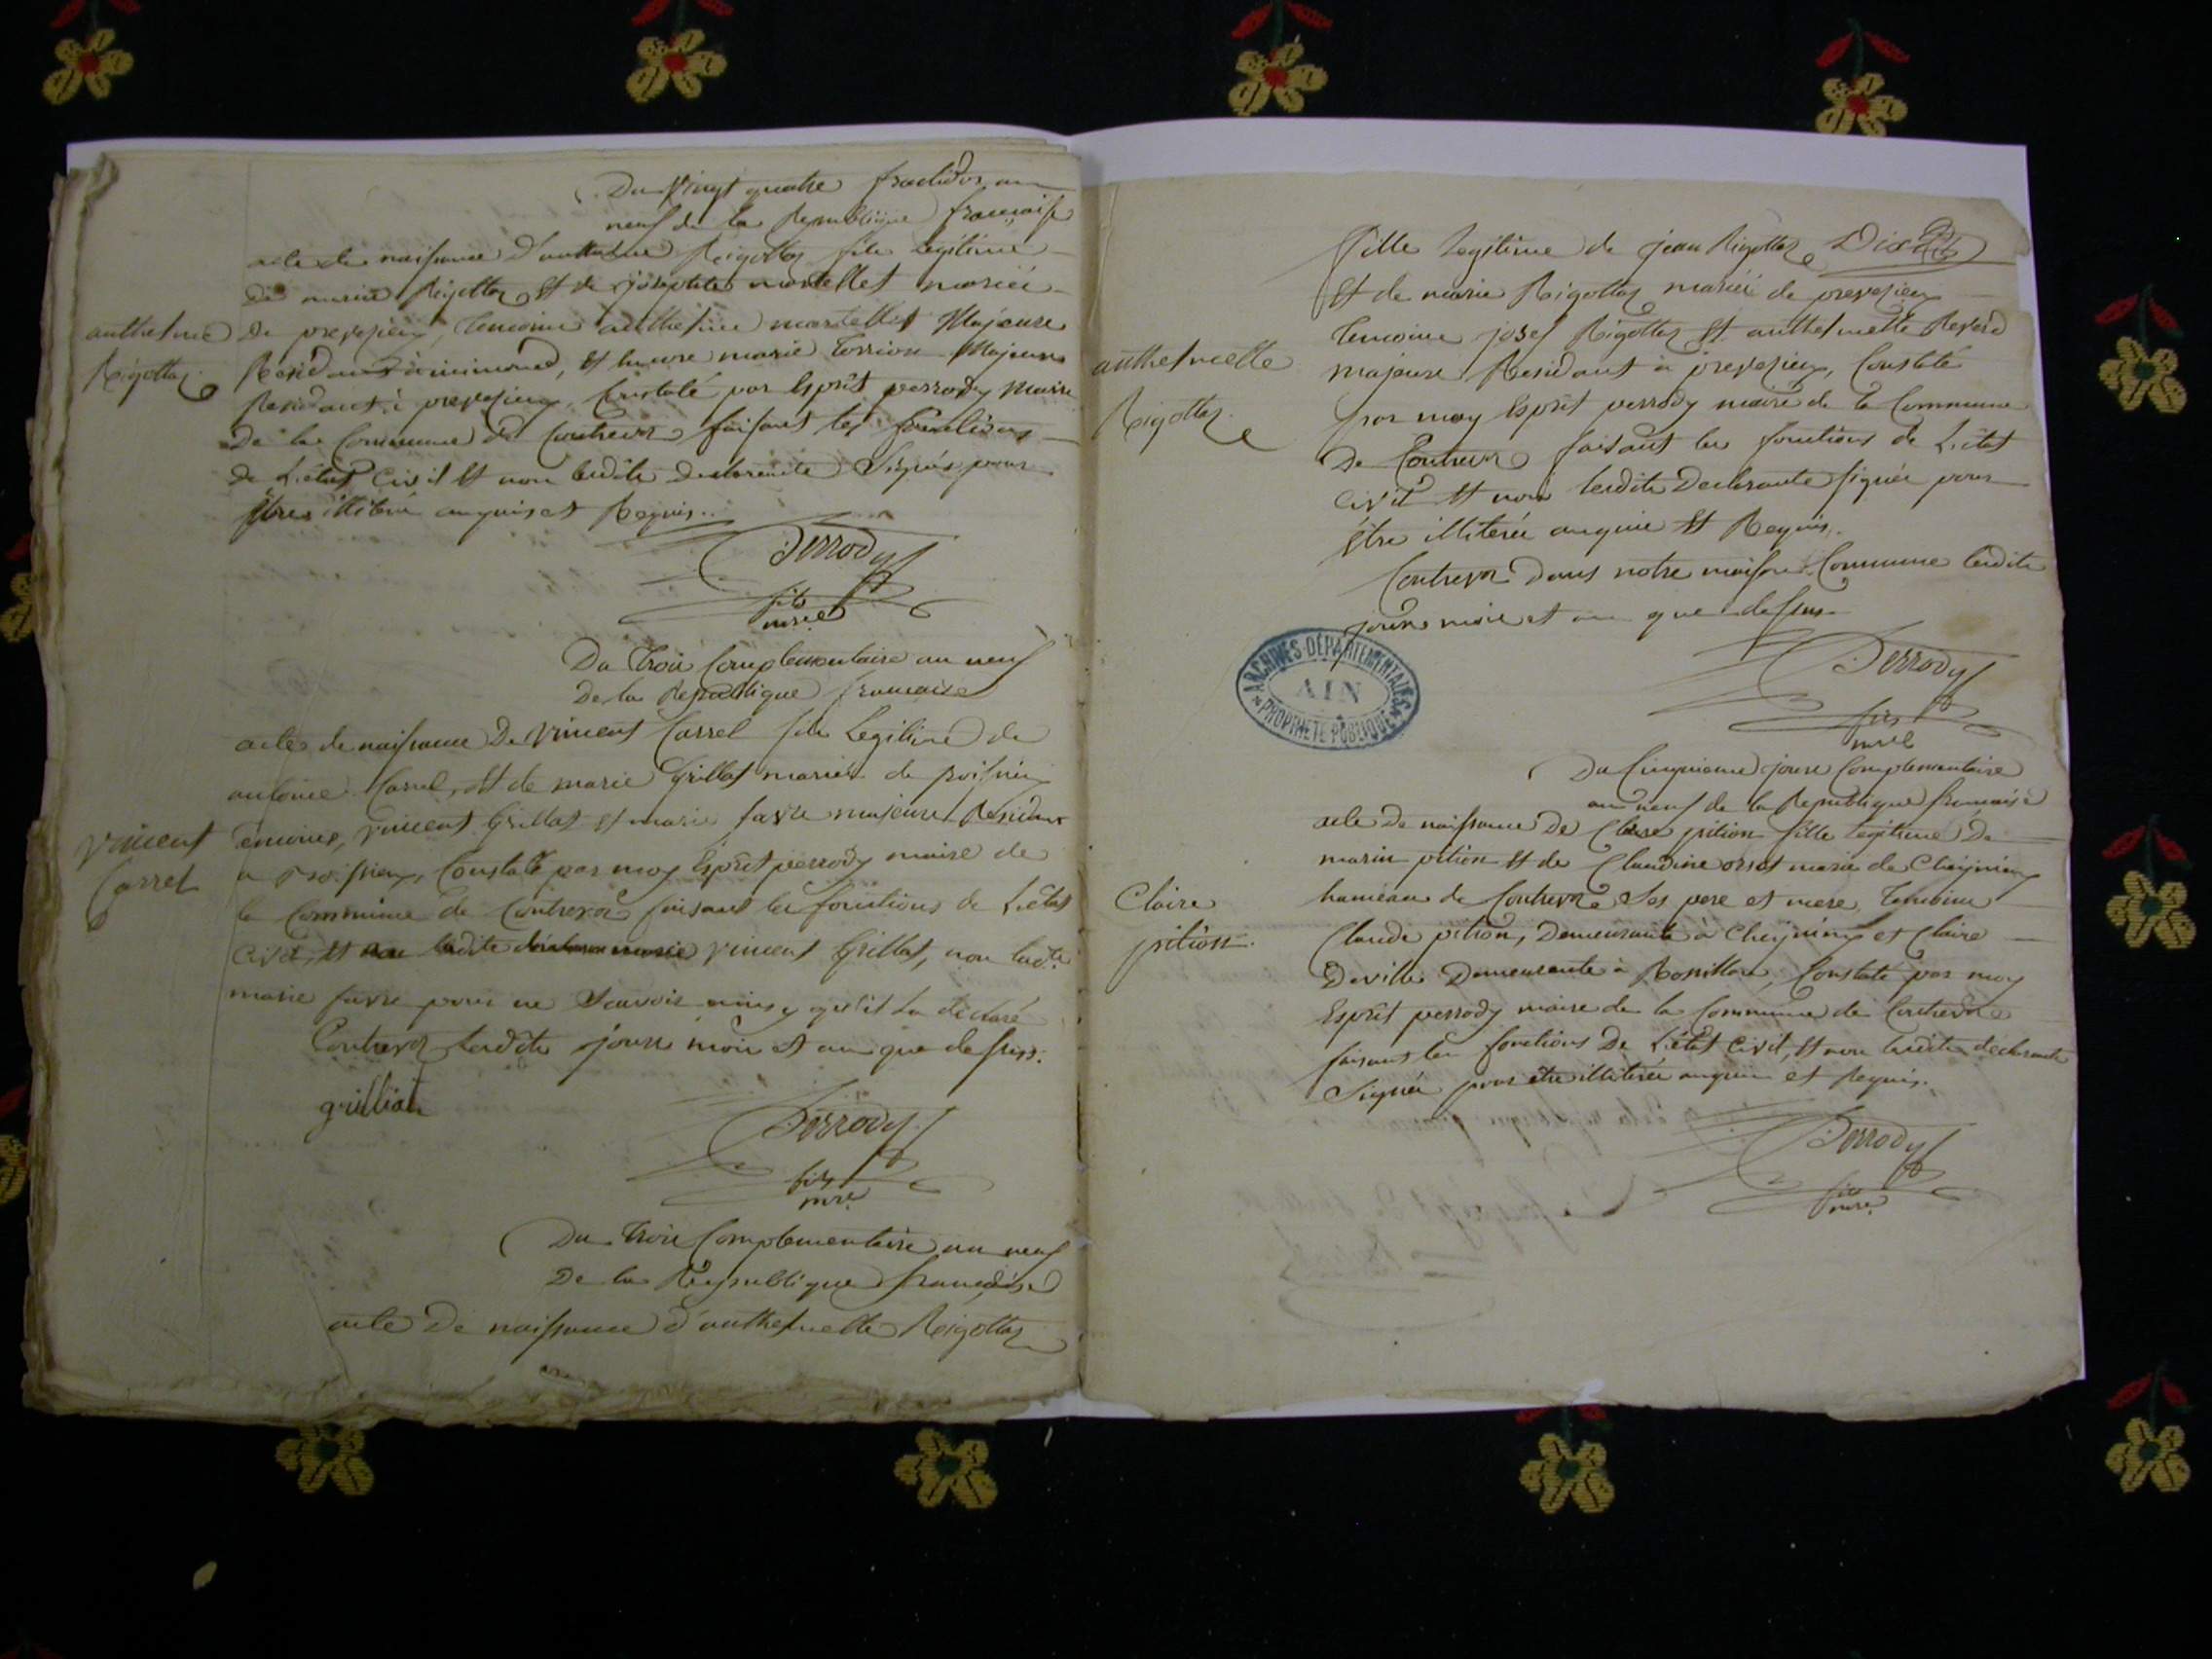 Du Vingt quatre fructidor an
neuf de la Republique française
acte de naissance d'anthelme Rigottaz fils Legitime
de marie Rigottaz Et de josephte martellet mariée
anthelme
Rigottaz
De preveyzieu, Temoins anthelme martellet Majeure
Residant, Et encore marie Torrion Majeure
Residant à preveyzieu, Constaté par Esprit perrody Maire
De la Commune de Contrevoz faisant les fonctions
de L'état Civil Et non lesdits declarants Signés pour
être illiteré enquis et Requis..
Perrody
fils
mre
Du Trois Complementaire an neuf
De la Republique francaise
acte de naissance De Vincent Carrel fils Legitime de
antoine Carrel, et de marie Grillat mariés de poissieu
Vincent
Carrel
Temoins, Vincent Grillat Et marie favre majeure Residant
a poissieu, Constaté par moy Esprit perrody maire de
la Commune de Contrevoz faisant les fonctions de L'état
Civil, Et Vincent Grillat, non ladte
marie favre pour ne Scavoir ainsy qu'il la déclaré
Contrevoz Ledit jour mois et an que dessus.
grilliat
Perrody
fils
mre
Du Trois Complementaire an neuf
De la Republique française
acte De naissance d'anthelmette Rigottaz
Dix
fille Legitime de jean Rigottaz
Et de marie Rigottaz mariée de preveyzieu
anthelmette
Rigottaz
Temoins josef Rigottaz Et anthelmette Reverd
majeure Residant a preveyzieu, Constaté
par moy Esprit perrody maire de la Commune
De Contrevoz faisant les fonctions de L'état
Civil Et non lesdits Declarants signés pour
être illiterée enquis Et Requis.
Contrevoz Dans notre maison Commune ledit
jour mois et an que dessus
ARCHIVES DÉPARTEMENTALES
AIN
PROPRIÉTÉ PUBLIQUE
Perrody
fils
mre
Du Cinquieme jour Complementaire
an neuf de la Republique française
acte De naissance De Claire pition fille Legitime De
marin pition Et de Claudine orset marie de Cheignieu
Claire
pition.
hameau de Contrevoz Ses pere et mere, Temoins
Claude pition, Demeurante à Cheignieu et Claire
Deville Demeurante à Rossillon, Constaté par moy
Esprit perrody maire de la Commune de Contrevoz
faisant les fonctions De L'état Civil, Et non lesdits declarants
Signés pour être illiterée enquis et Requis.
Perrody
fils
mre